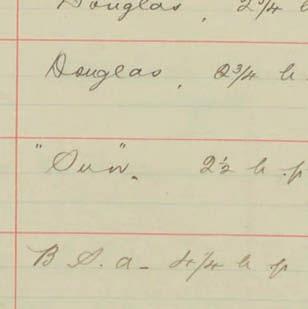 Douglas, 2 3/4 h
Douglas, 2 3/4 h.
"Sun". 2 1/2 h.p
B S. a - 4 1/4 h p